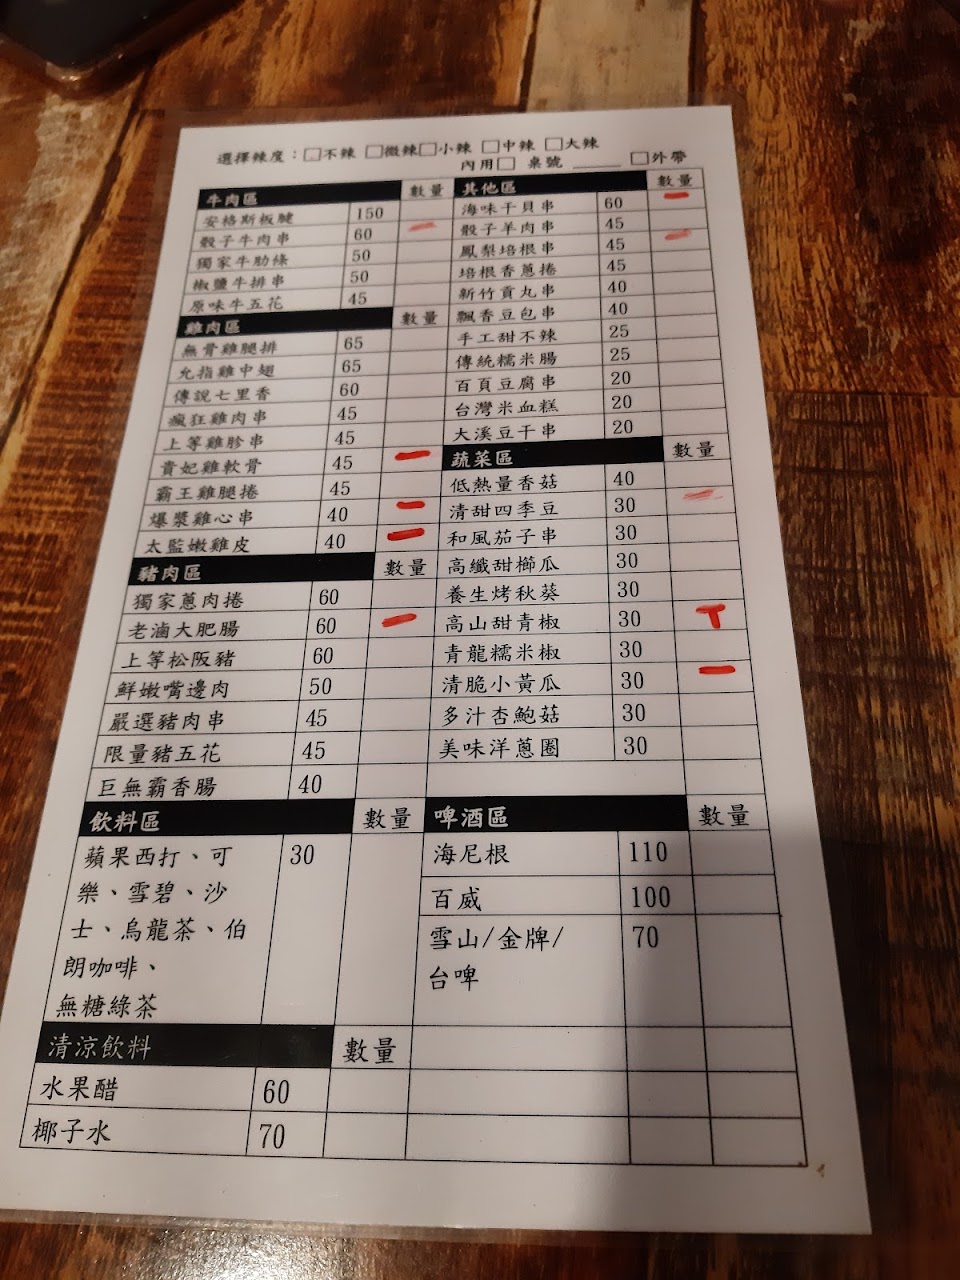 選擇辣度：□不辣 □微辣□小辣 □中辣 □大辣
內用□ 桌號 ______ □外帶
牛肉區 數量
安格斯板腱 150
骰子牛肉串 60 一
獨家牛肋條 50
椒鹽牛排串 50
原味牛五花 45
雞肉區 數量
無骨雞腿排 65
允指雞中翅 65
傳說七里香 60
瘋狂雞肉串 45
上等雞胗串 45
貴妃雞軟骨 45 一
霸王雞腿捲 45
爆漿雞心串 40 一
太監嫩雞皮 40 一
豬肉區 數量
獨家蔥肉捲 60
老滷大肥腸 60 一
上等松阪豬 60
鮮嫩嘴邊肉 50
嚴選豬肉串 45
限量豬五花 45
巨無霸香腸 40
飲料區 數量
蘋果西打、可 30
樂、雪碧、沙
士、烏龍茶、伯
朗咖啡、
無糖綠茶
清涼飲料 數量
水果醋 60
椰子水 70
其他區 數量
海味干貝串 60 一
骰子羊肉串 45
鳳梨培根串 45 一
培根香蔥捲 45
新竹貢丸串 40
飄香豆包串 40
手工甜不辣 25
傳統糯米腸 25
百頁豆腐串 20
台灣米血糕 20
大溪豆干串 20
蔬菜區 數量
低熱量香菇 40
清甜四季豆 30 一
和風茄子串 30
高纖甜櫛瓜 30
養生烤秋葵 30
高山甜青椒 30 T
青龍糯米椒 30
清脆小黃瓜 30 一
多汁杏鮑菇 30
美味洋蔥圈 30
啤酒區 數量
海尼根 110
百威 100
雪山/金牌/ 70
台啤